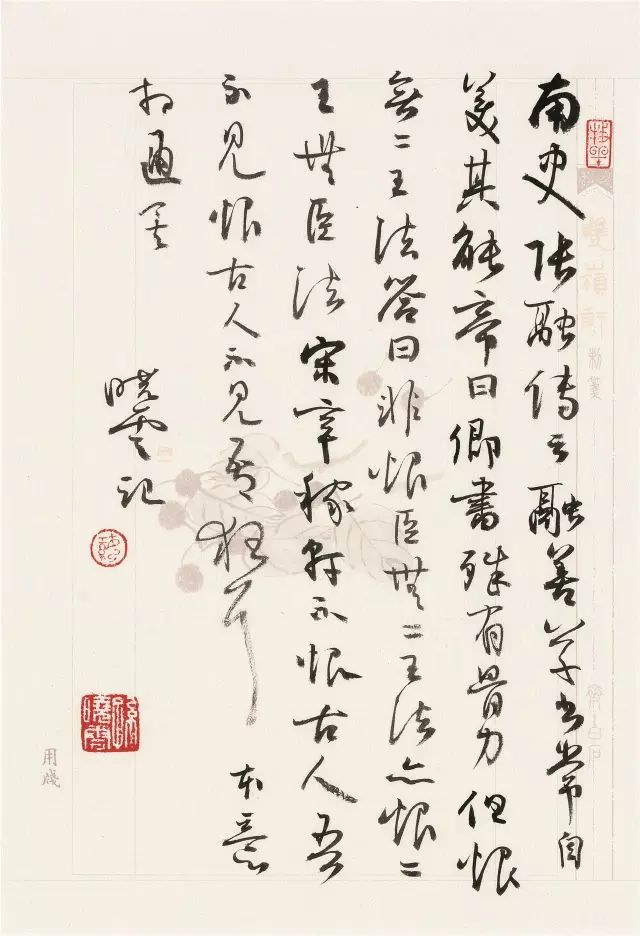 南史張融傳云融善草書常自
美其能帝曰卿書殊有骨力但恨
無二王法答曰非恨臣無二王法亦恨二
王無臣法宋辛稼軒不恨古人吾
不見恨古人不見吾狂耳本意
相通矣
曉雲記
孫曉雲
齊白石
用牋